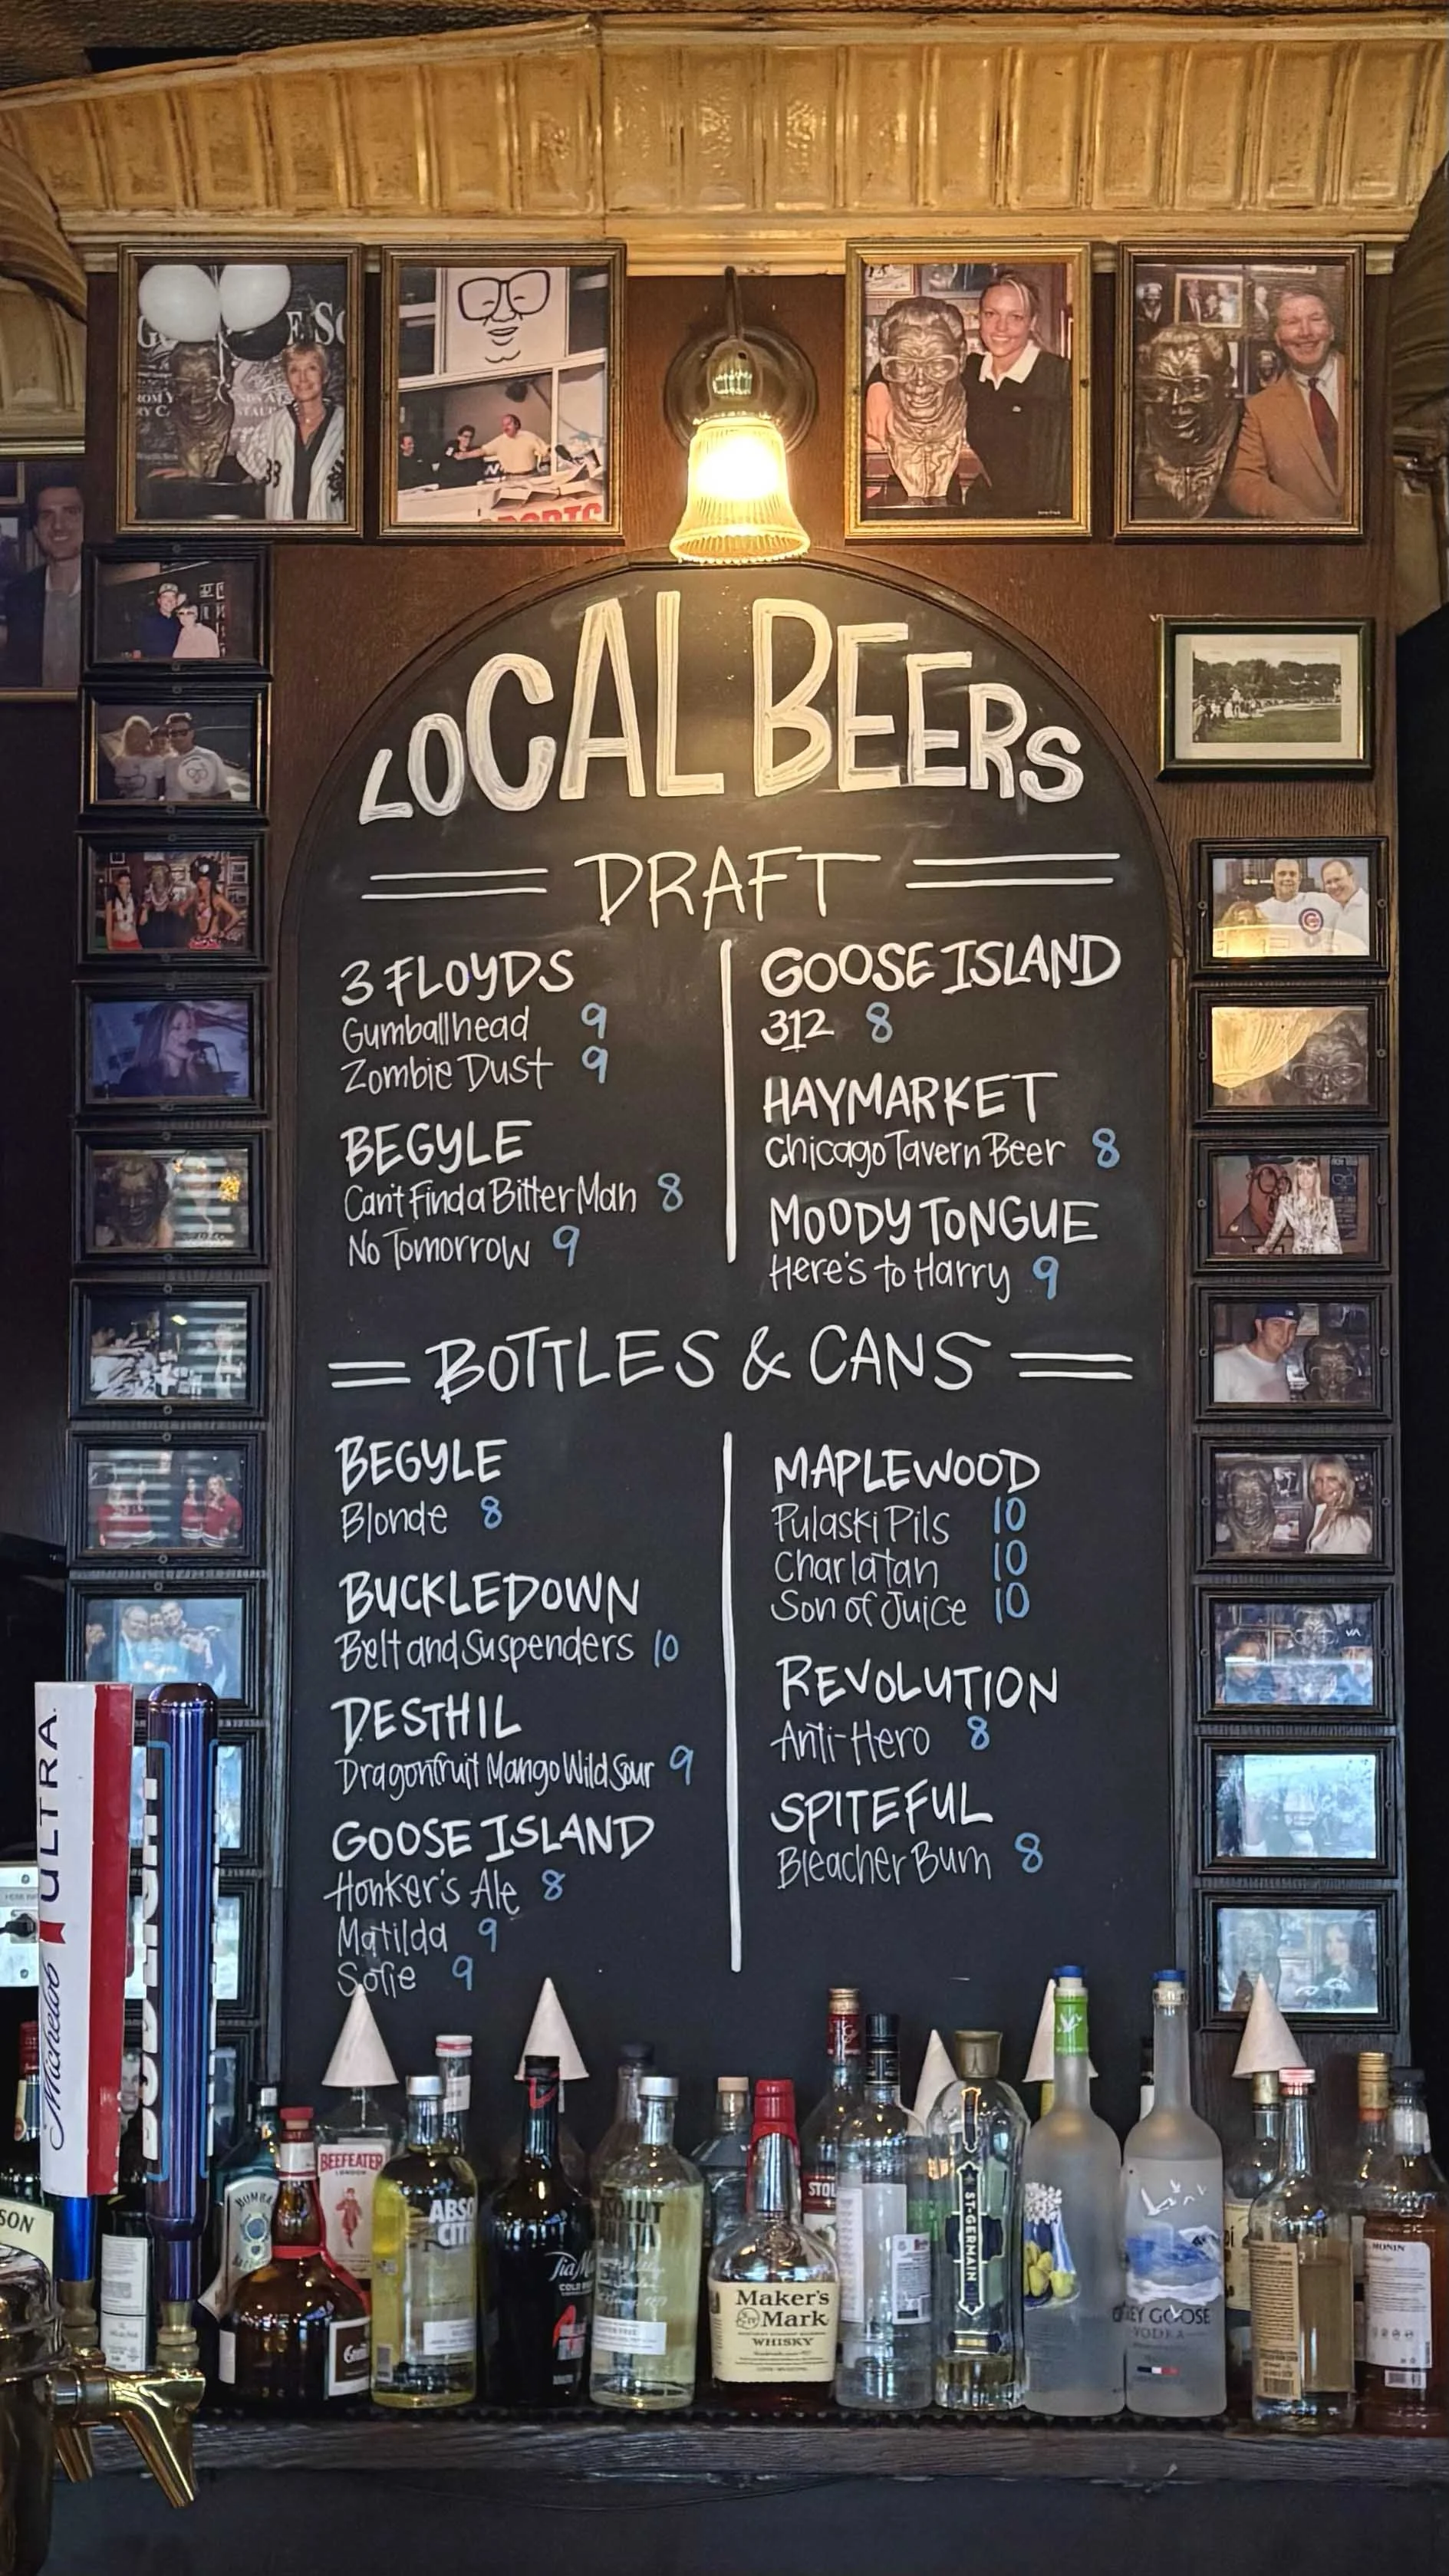 LOCAL BEERS
DRAFT
3 FLOYDS
Gumballhead 9
Zombie Dust 9
BEGYLE
Can't Find a Bitter Man 8
No Tomorrow 9
GOOSE ISLAND
312 8
HAYMARKET
Chicago Tavern Beer 8
MOODY TONGUE
Here's to Harry 9
BOTTLES & CANS
BEGYLE
Blonde 8
BUCKLEDOWN
Belt and Suspenders 10
DESTHIL
Dragonfruit Mango Wild Sour 9
GOOSE ISLAND
Honker's Ale 8
Matilda 9
Sofie 9
MAPLEWOOD
Pulaski Pils 10
Charlatan 10
Son of Juice 10
REVOLUTION
Anti-Hero 8
SPITEFUL
Bleacher Bum 8
Michelob ULTRA
BEEFEATER
LONDON
Maker's
Mark
WHISKY
ST-GERMAIN
GOOSE
VODKA
MONIN